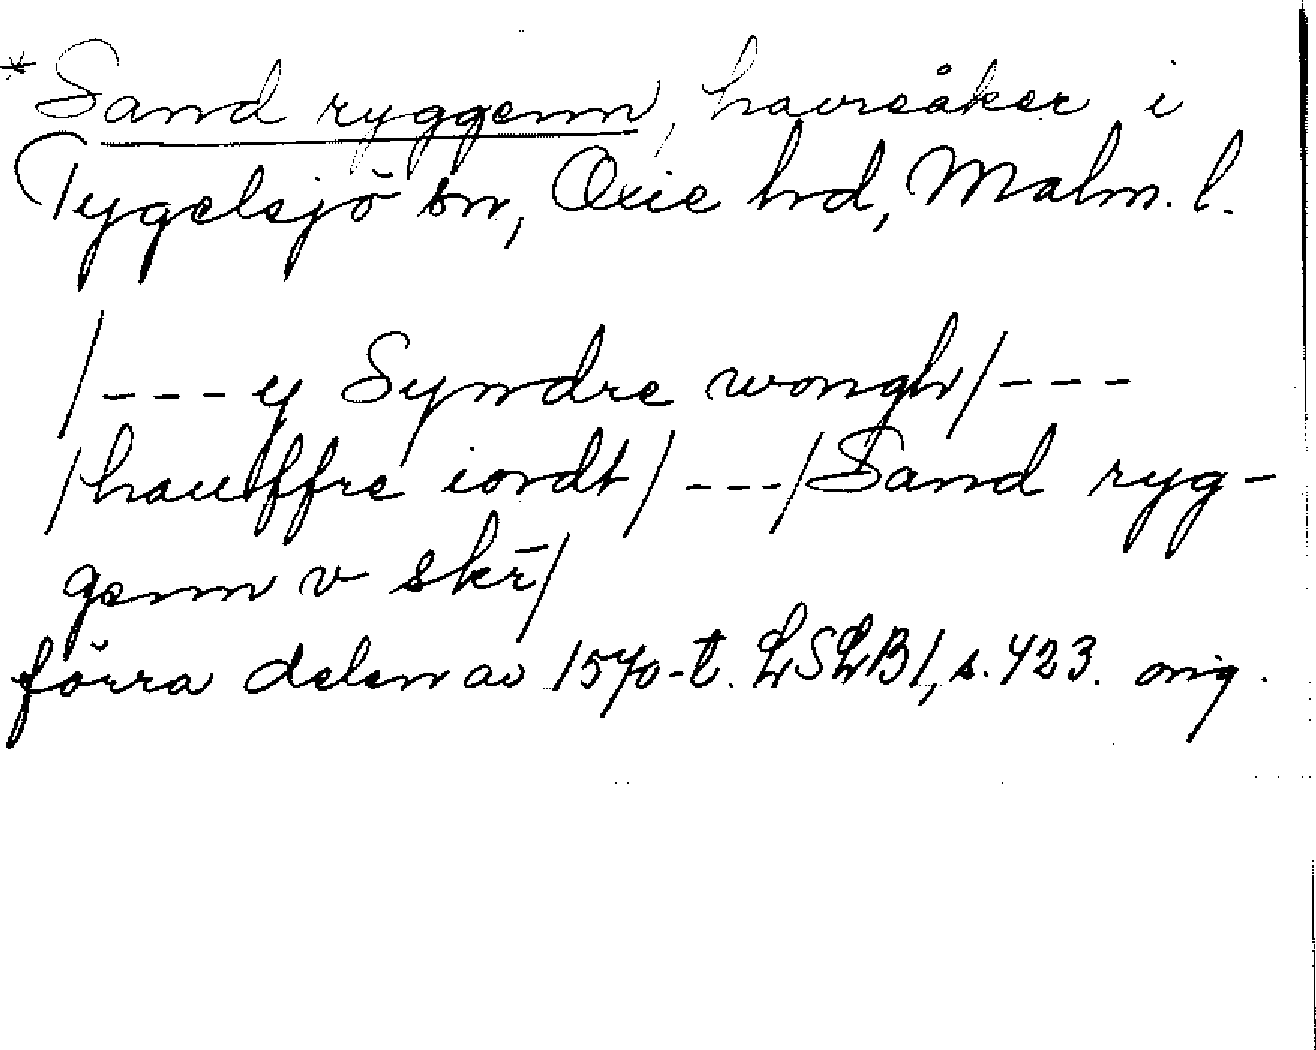 *Sand ryggenn, havreåker i
Tygelsjö sn, Oxie hrd, Malm. l.
/--- y Syndre wongh/---
/hauffre iordt/---/Sand ryg-
genn v skr̄/
förra delen av 1570-t. LSLB1, s. 423. orig.